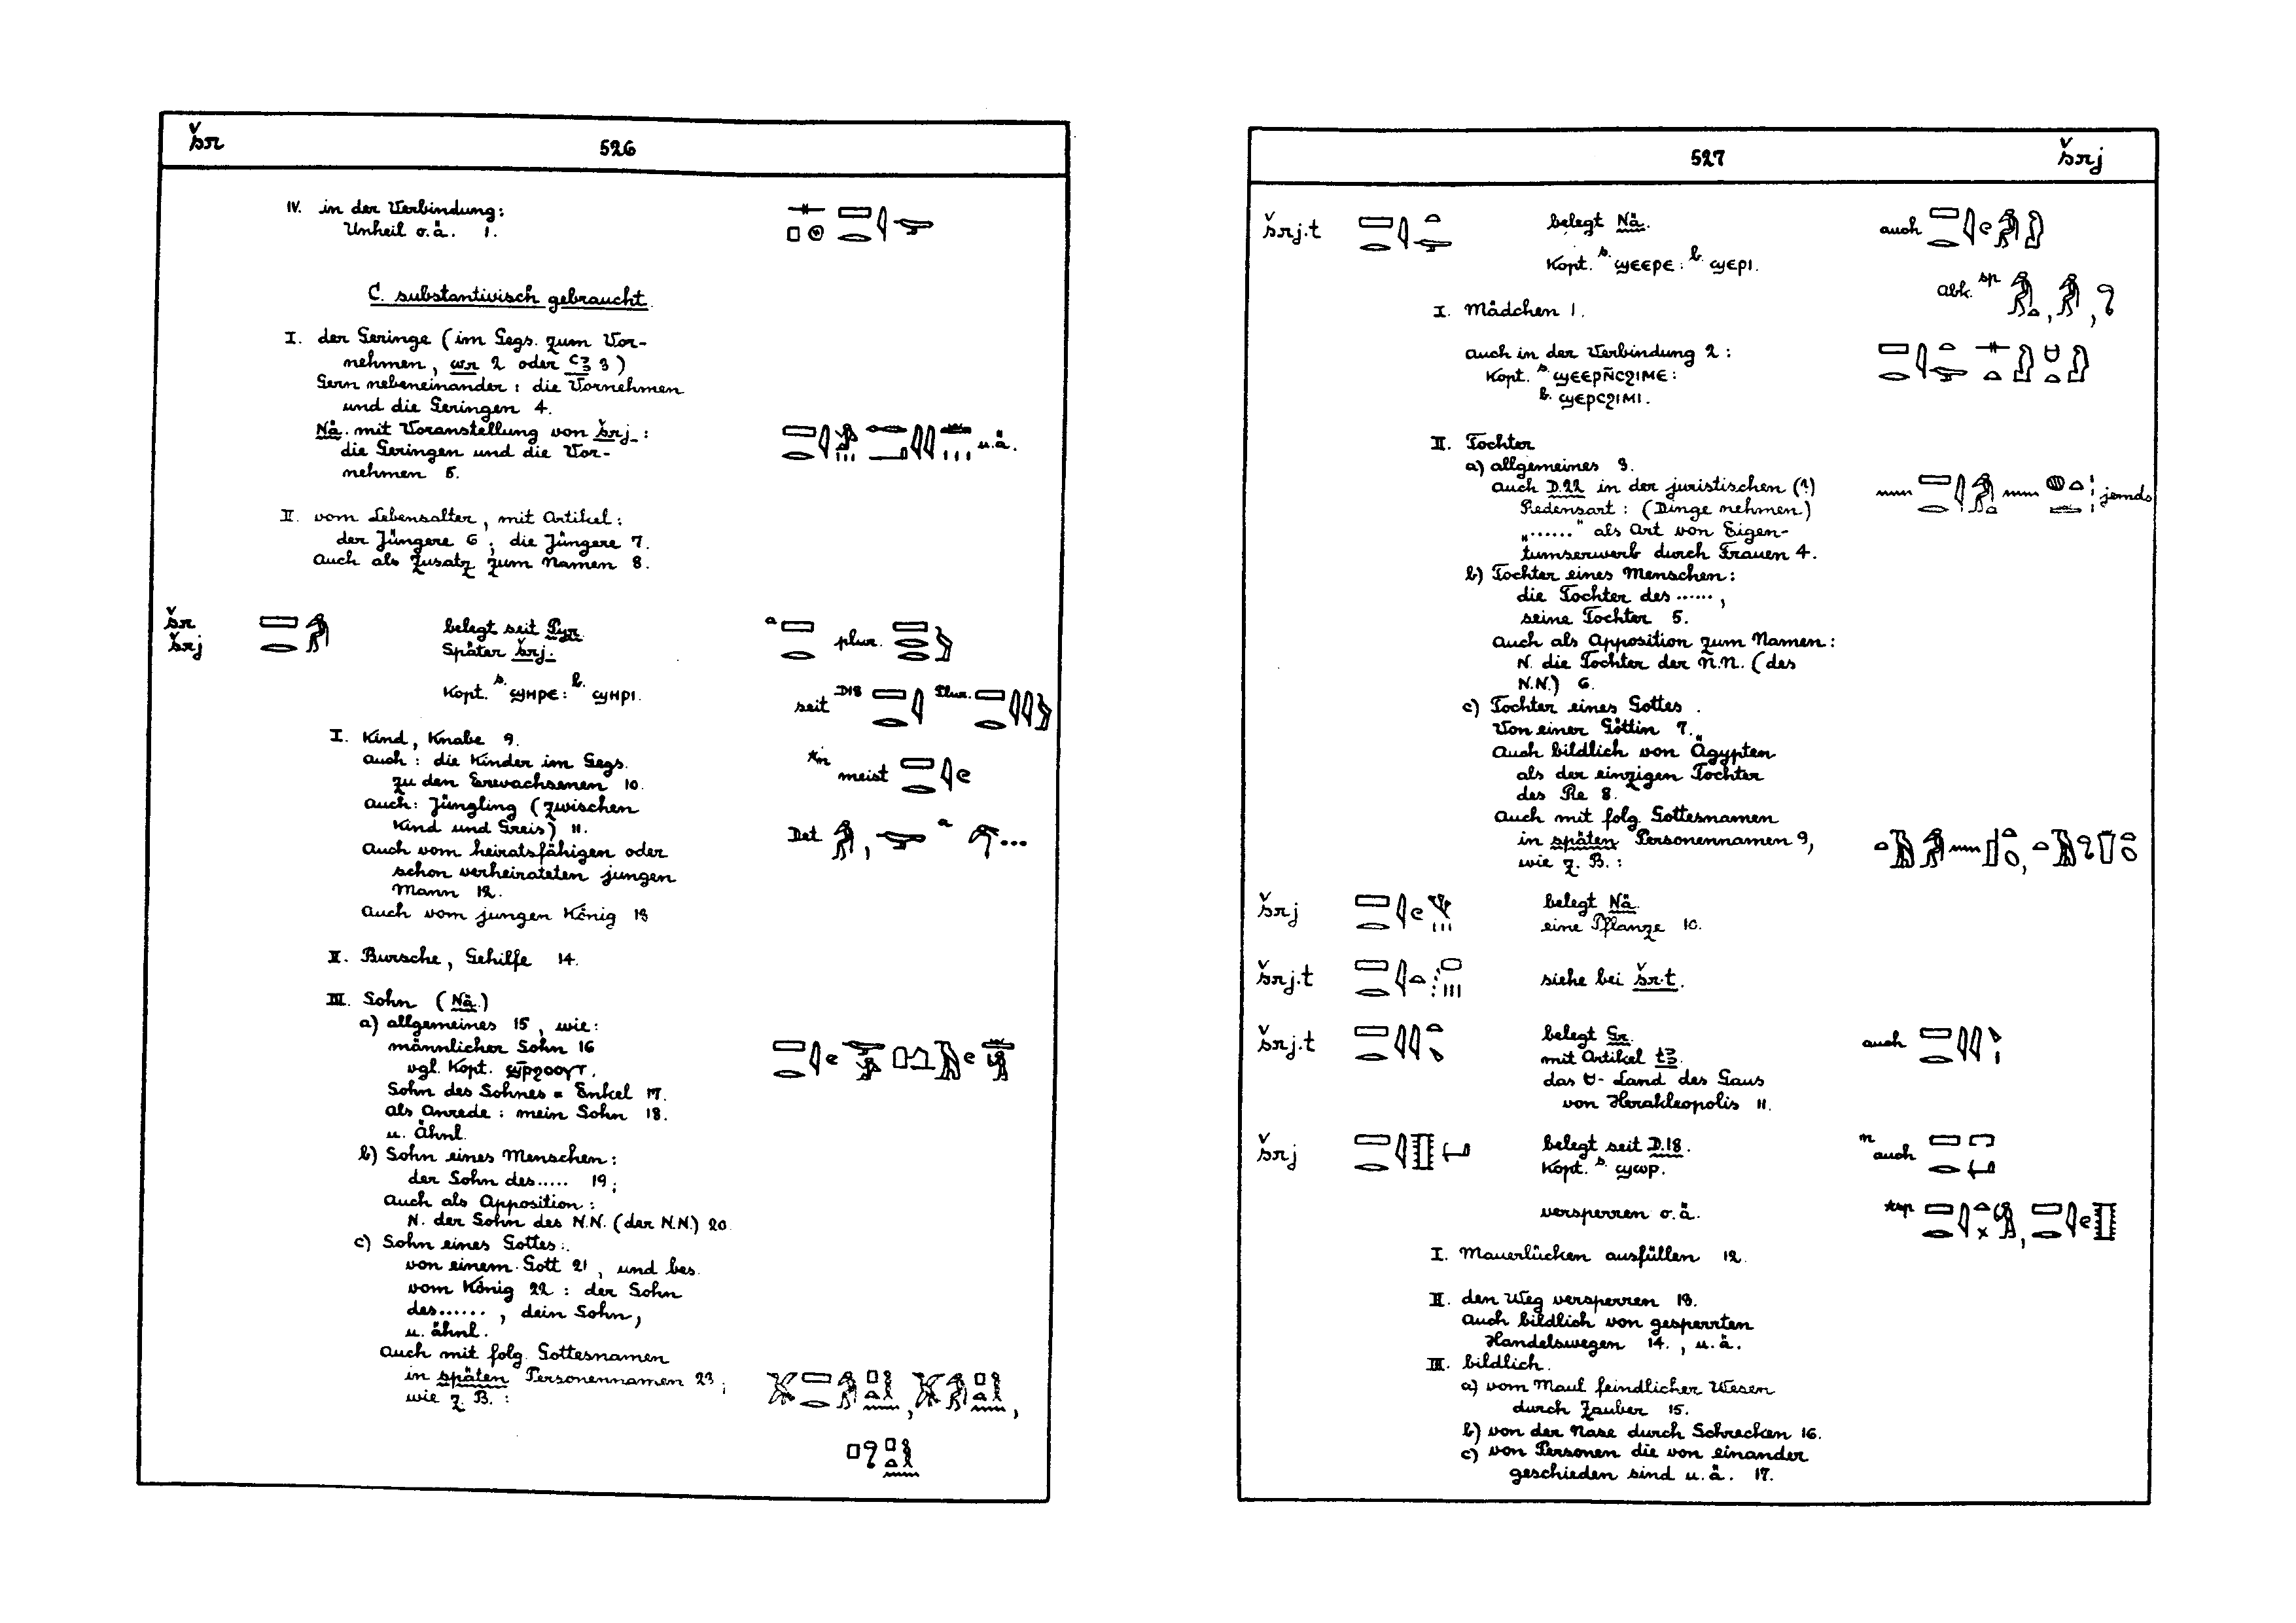 šr 526
IV. in der Verbindung:
Unheil o.ä. 1.
C. substantivisch gebraucht.
I. der Geringe (im Gegs. zum Vor-
nehmen, wr 2 oder ꜥꜣ 3)
Gern nebeneinander: die Vornehmen
und die Geringen 4.
Nä. mit Voranstellung von šrj:
die Geringen und die Vor-
nehmen 5.
u.ä.
II. vom Lebensalter, mit Artikel:
der Jüngere 6; die Jüngere 7.
Auch als Zusatz zum Namen 8.
šr
šrj
belegt seit Pyr.
Später šrj.
a plur.
Kopt. s. ϣⲏⲣⲉ: b. ϣⲏⲣⲓ.
seit D18 Plur.
I. Kind, Knabe 9.
auch: die Kinder im Gegs.
zu den Erwachsenen 10.
auch: Jüngling (zwischen
Kind und Greis) 11.
Auch vom heiratsfähigen oder
schon verheirateten jungen
Mann 12.
Auch vom jungen König 13
meist
Det
II. Bursche, Gehilfe 14.
III. Sohn (Nä.)
a) allgemeines 15, wie:
männlicher Sohn 16
vgl. Kopt. ϣⲣ̄ϩⲟⲟⲩⲧ.
Sohn des Sohnes = Enkel 17.
als Anrede: mein Sohn 18.
u. ähnl.
b) Sohn eines Menschen:
der Sohn des ..... 19;
Auch als Apposition:
N. der Sohn des N.N. (der N.N.) 20
c) Sohn eines Gottes:
von einem Gott 21, und bes.
vom König 22: der Sohn
des ......, dein Sohn,
u. ähnl.
Auch mit folg. Gottesnamen
in späten Personennamen 23;
wie z. B.:
527 šrj
šrj.t belegt Nä. auch
Kopt. s. ϣⲉⲉⲣⲉ: b. ϣⲉⲣⲓ.
Abk. sp
I. Mädchen 1.
auch in der Verbindung 2:
Kopt. s. ϣⲉⲉⲣⲛ̄ⲥϩⲓⲙⲉ:
b. ϣⲉⲣⲥϩⲓⲙⲓ.
II. Tochter
a) allgemeines 3.
auch D.22 in der juristischen (?)
Redensart: (Dinge nehmen)
„......" als Art von Eigen-
tumserwerb durch Frauen 4.
jemds
b) Tochter eines Menschen:
die Tochter des ......,
seine Tochter 5.
Auch als Apposition zum Namen:
N. die Tochter der N.N. (des
N.N.) 6.
c) Tochter eines Gottes.
Von einer Göttin 7.
Auch bildlich von Ägypten
als der einzigen Tochter
des Re 8.
Auch mit folg. Gottesnamen
in späten Personennamen 9,
wie z. B.:
šrj belegt Nä.
eine Pflanze 10.
šrj.t siehe bei šr.t.
šrj.t belegt Gr. auch
mit Artikel tꜣ.
das Land des Gaus
von Herakleopolis 11.
šrj belegt seit D.18. n auch
Kopt. s. ϣⲱⲣ.
versperren o.ä.
I. Mauerlücken ausfüllen 12.
II. den Weg versperren 13.
Auch bildlich von gesperrten
Handelswegen 14., u.ä.
III. bildlich.
a) vom Maul feindlicher Wesen
durch Zauber 15.
b) von der Nase durch Schrecken 16.
c) von Personen die von einander
geschieden sind u.ä. 17.